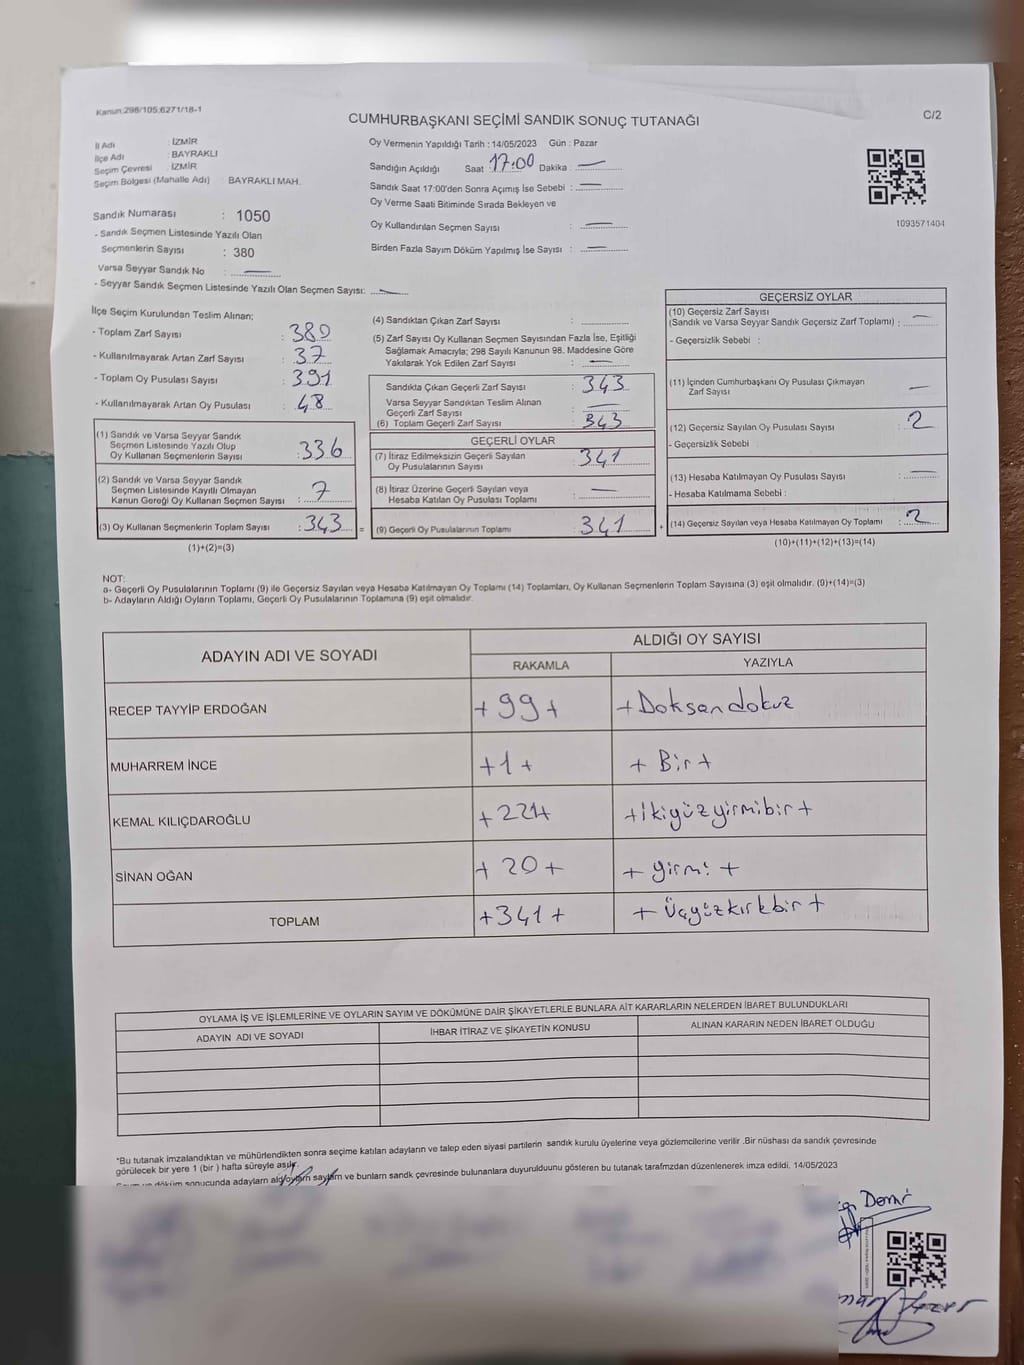 Kanun:298/105;6271/18-1
CUMHURBAŞKANI SEÇİMİ SANDIK SONUÇ TUTANAĞI
C/2
İl Adı : İZMİR
İlçe Adı : BAYRAKLI
Seçim Çevresi : İZMİR
Seçim Bölgesi (Mahalle Adı) : BAYRAKLI MAH.
Sandık Numarası : 1050
- Sandık Seçmen Listesinde Yazılı Olan
Seçmenlerin Sayısı : 380
Varsa Seyyar Sandık No : —
- Seyyar Sandık Seçmen Listesinde Yazılı Olan Seçmen Sayısı: —
Oy Vermenin Yapıldığı Tarih : 14/05/2023 Gün : Pazar
Sandığın Açıldığı Saat 17:00 Dakika : —
Sandık Saat 17:00'den Sonra Açımış İse Sebebi : —
Oy Verme Saati Bitiminde Sırada Bekleyen ve
Oy Kullandırılan Seçmen Sayısı : —
Birden Fazla Sayım Döküm Yapılmış İse Sayısı : —
1093571404
İlçe Seçim Kurulundan Teslim Alınan;
- Toplam Zarf Sayısı : 380
- Kullanılmayarak Artan Zarf Sayısı : 37
- Toplam Oy Pusulası Sayısı : 391
- Kullanılmayarak Artan Oy Pusulası : 48
(1) Sandık ve Varsa Seyyar Sandık
Seçmen Listesinde Yazılı Olup
Oy Kullanan Seçmenlerin Sayısı : 336
(2) Sandık ve Varsa Seyyar Sandık
Seçmen Listesinde Kayıllı Olmayan
Kanun Gereği Oy Kullanan Seçmen Sayısı : 7
(3) Oy Kullanan Seçmenlerin Toplam Sayısı : 343 =
(1)+(2)=(3)
(4) Sandıktan Çıkan Zarf Sayısı :
(5) Zarf Sayısı Oy Kullanan Seçmen Sayısından Fazla İse, Eşitliği
Sağlamak Amacıyla; 298 Sayılı Kanunun 98. Maddesine Göre
Yakılarak Yok Edilen Zarf Sayısı : —
Sandıkta Çıkan Geçerli Zarf Sayısı : 343
Varsa Seyyar Sandıktan Teslim Alınan
Geçerli Zarf Sayısı : —
(6) Toplam Geçerli Zarf Sayısı : 343
GEÇERLİ OYLAR
(7) İtiraz Edilmeksizin Geçerli Sayılan
Oy Pusulalarının Sayısı : 341
(8) İtiraz Üzerine Geçerli Sayılan veya
Hesaba Katılan Oy Pusulası Toplamı : —
(9) Geçerli Oy Pusulalarının Toplamı : 341 +
GEÇERSİZ OYLAR
(10) Geçersiz Zarf Sayısı
(Sandık ve Varsa Seyyar Sandık Geçersiz Zarf Toplamı) : —
- Geçersizlik Sebebi :
(11) İçinden Cumhurbaşkanı Oy Pusulası Çıkmayan
Zarf Sayısı —
(12) Geçersiz Sayılan Oy Pusulası Sayısı : 2
- Geçersizlik Sebebi
(13) Hesaba Katılmayan Oy Pusulası Sayısı : —
- Hesaba Katılmama Sebebi :
(14) Geçersiz Sayılan veya Hesaba Katılmayan Oy Toplamı : 2
(10)+(11)+(12)+(13)=(14)
NOT:
a- Geçerli Oy Pusulalarının Toplamı (9) ile Geçersiz Sayılan veya Hesaba Katılmayan Oy Toplamı (14) Toplamları, Oy Kullanan Seçmenlerin Toplam Sayısına (3) eşit olmalıdır. (9)+(14)=(3)
b- Adayların Aldığı Oyların Toplamı, Geçerli Oy Pusulalarının Toplamına (9) eşit olmalıdır.
ADAYIN ADI VE SOYADI ALDIĞI OY SAYISI
RAKAMLA YAZIYLA
RECEP TAYYİP ERDOĞAN +99+ +Doksandokuz
MUHARREM İNCE +1+ +Bir+
KEMAL KILIÇDAROĞLU +221+ +İkiyüzyirmibir+
SİNAN OĞAN +20+ +yirmi+
TOPLAM +341+ +Üçyüzkırkbir+
OYLAMA İŞ VE İŞLEMLERİNE VE OYLARIN SAYIM VE DÖKÜMÜNE DAİR ŞİKAYETLERLE BUNLARA AİT KARARLARIN NELERDEN İBARET BULUNDUKLARI
ADAYIN ADI VE SOYADI İHBAR İTİRAZ VE ŞİKAYETİN KONUSU ALINAN KARARIN NEDEN İBARET OLDUĞU
*Bu tutanak imzalandıktan ve mühürlendikten sonra seçime katılan adayların ve talep eden siyasi partilerin sandık kurulu üyelerine veya gözlemcilerine verilir .Bir nüshası da sandık çevresinde
görülecek bir yere 1 (bir ) hafta süreyle asılır.
sonucunda adayların ve bunların sandk çevresinde bulunanlara duyurulduunu gösteren bu tutanak tarafmzdan düzenlenerek imza edildi. 14/05/2023
Demir